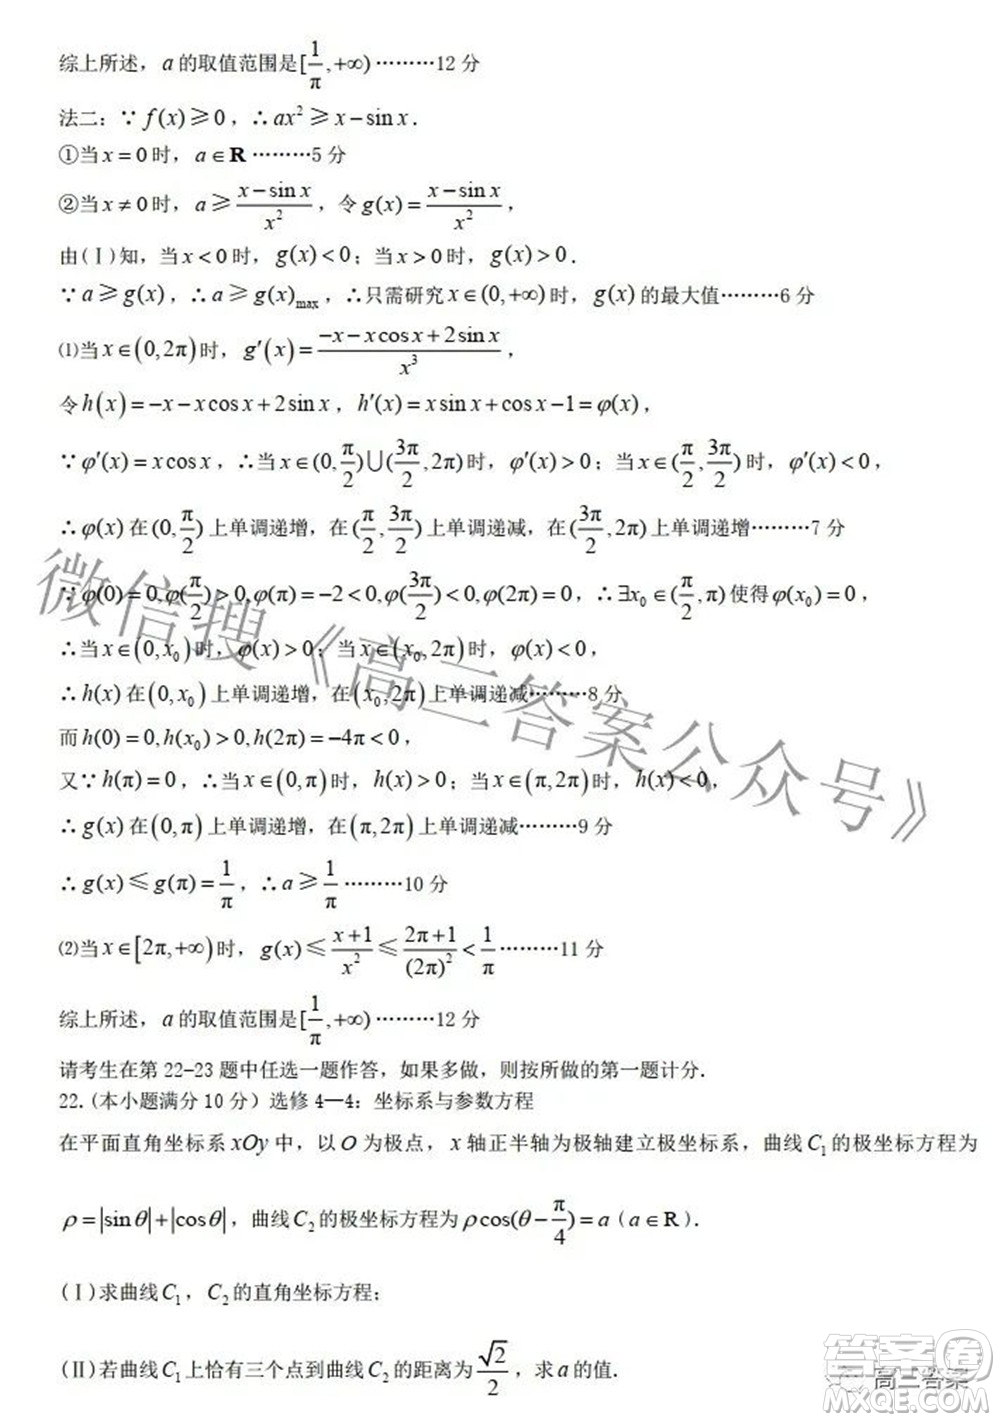 综上所述，a 的取值范围是[1/π,+∞)………12 分
法二：∵ f(x)≥0，∴ax²≥x−sin x．
①当 x=0 时，a∈R………5 分
②当 x≠0 时，a≥(x−sin x)/x²，令 g(x)=(x−sin x)/x²，
由(Ⅰ)知，当 x<0 时，g(x)<0；当 x>0 时，g(x)>0．
∵a≥g(x)，∴a≥g(x)max，∴只需研究 x∈(0,+∞)时，g(x)的最大值………6 分
⑴当 x∈(0,2π)时，g′(x)=(−x−xcos x+2sin x)/x³，
令 h(x)=−x−xcos x+2sin x，h′(x)=xsin x+cos x−1=φ(x)，
∵φ′(x)=xcos x，∴当 x∈(0,π/2)∪(3π/2,2π)时，φ′(x)>0；当 x∈(π/2,3π/2)时，φ′(x)<0，
∴φ(x)在(0,π/2)上单调递增，在(π/2,3π/2)上单调递减，在(3π/2,2π)上单调递增………7 分
∵φ(0)=0,φ(π/2)>0,φ(π)=−2<0,φ(3π/2)<0,φ(2π)=0，∴∃x₀∈(π/2,π)使得φ(x₀)=0，
∴当 x∈(0,x₀)时，φ(x)>0；当 x∈(x₀,2π)时，φ(x)<0，
∴h(x)在(0,x₀)上单调递增，在(x₀,2π)上单调递减………8 分
而 h(0)=0,h(x₀)>0,h(2π)=−4π<0，
又∵h(π)=0，∴当 x∈(0,π)时，h(x)>0；当 x∈(π,2π)时，h(x)<0，
∴g(x)在(0,π)上单调递增，在(π,2π)上单调递减………9 分
∴g(x)≤g(π)=1/π，∴a≥1/π………10 分
⑵当 x∈[2π,+∞)时，g(x)≤(x+1)/x²≤(2π+1)/(2π)²<1/π………11 分
综上所述，a 的取值范围是[1/π,+∞)………12 分
请考生在第 22-23 题中任选一题作答，如果多做，则按所做的第一题计分．
22.(本小题满分 10 分）选修 4—4：坐标系与参数方程
在平面直角坐标系 xOy 中，以 O 为极点，x 轴正半轴为极轴建立极坐标系，曲线 C₁ 的极坐标方程为
ρ=|sinθ|+|cosθ|，曲线 C₂ 的极坐标方程为 ρcos(θ−π/4)=a（a∈R）．
(Ⅰ)求曲线 C₁，C₂ 的直角坐标方程；
(Ⅱ)若曲线 C₁ 上恰有三个点到曲线 C₂ 的距离为 √2/2，求 a 的值．
微信搜《高三答案公众号》
答案圈
高三答案